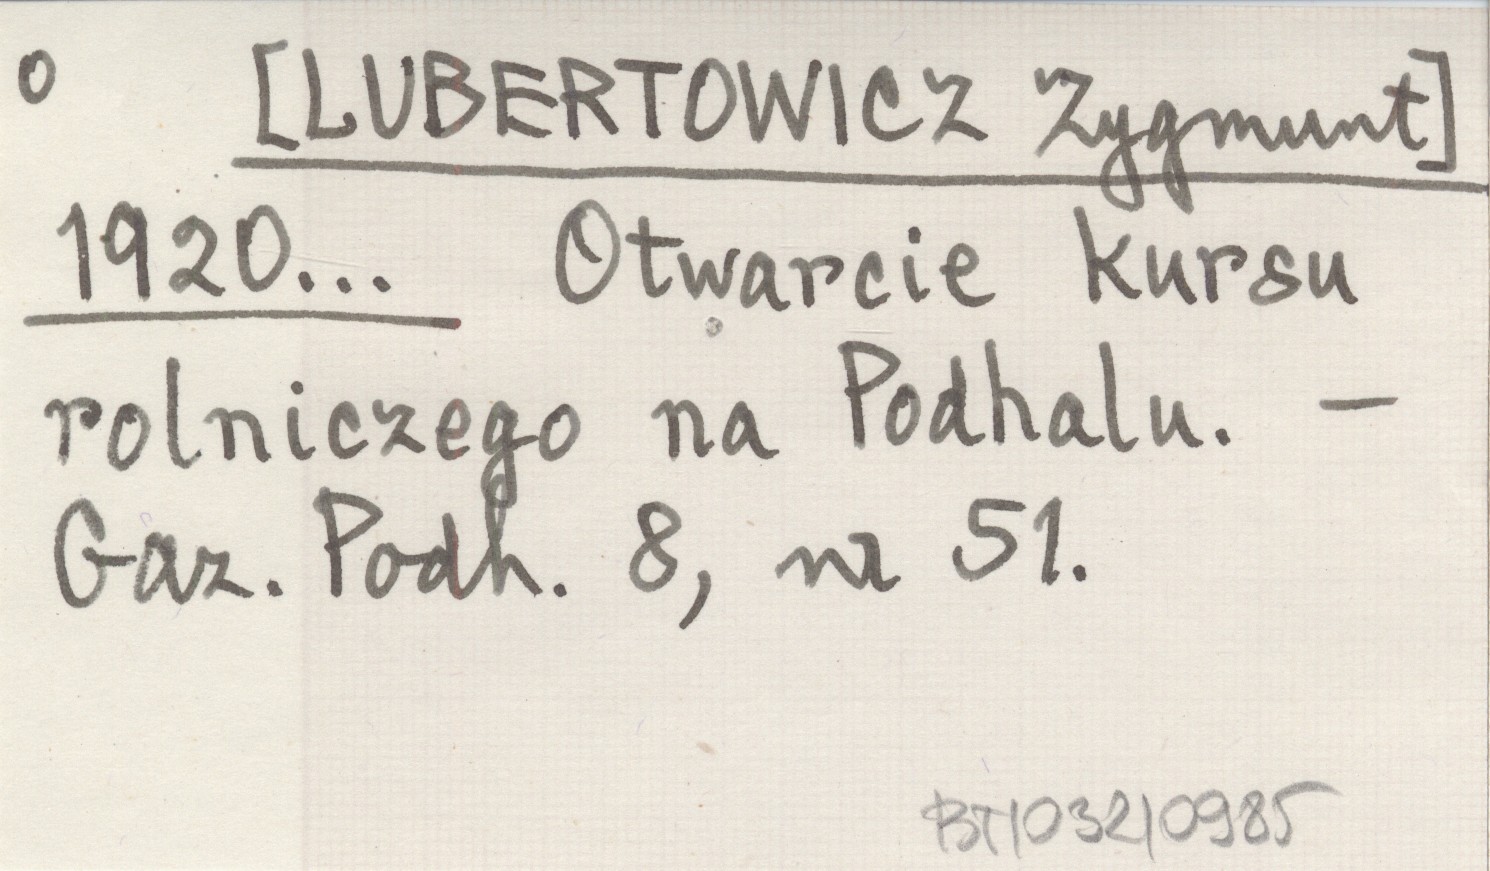 o [LUBERTOWICZ Zygmunt]
1920... Otwarcie kursu
rolniczego na Podhalu. —
Gaz. Podh. 8, nr 51.
BT/032/0985